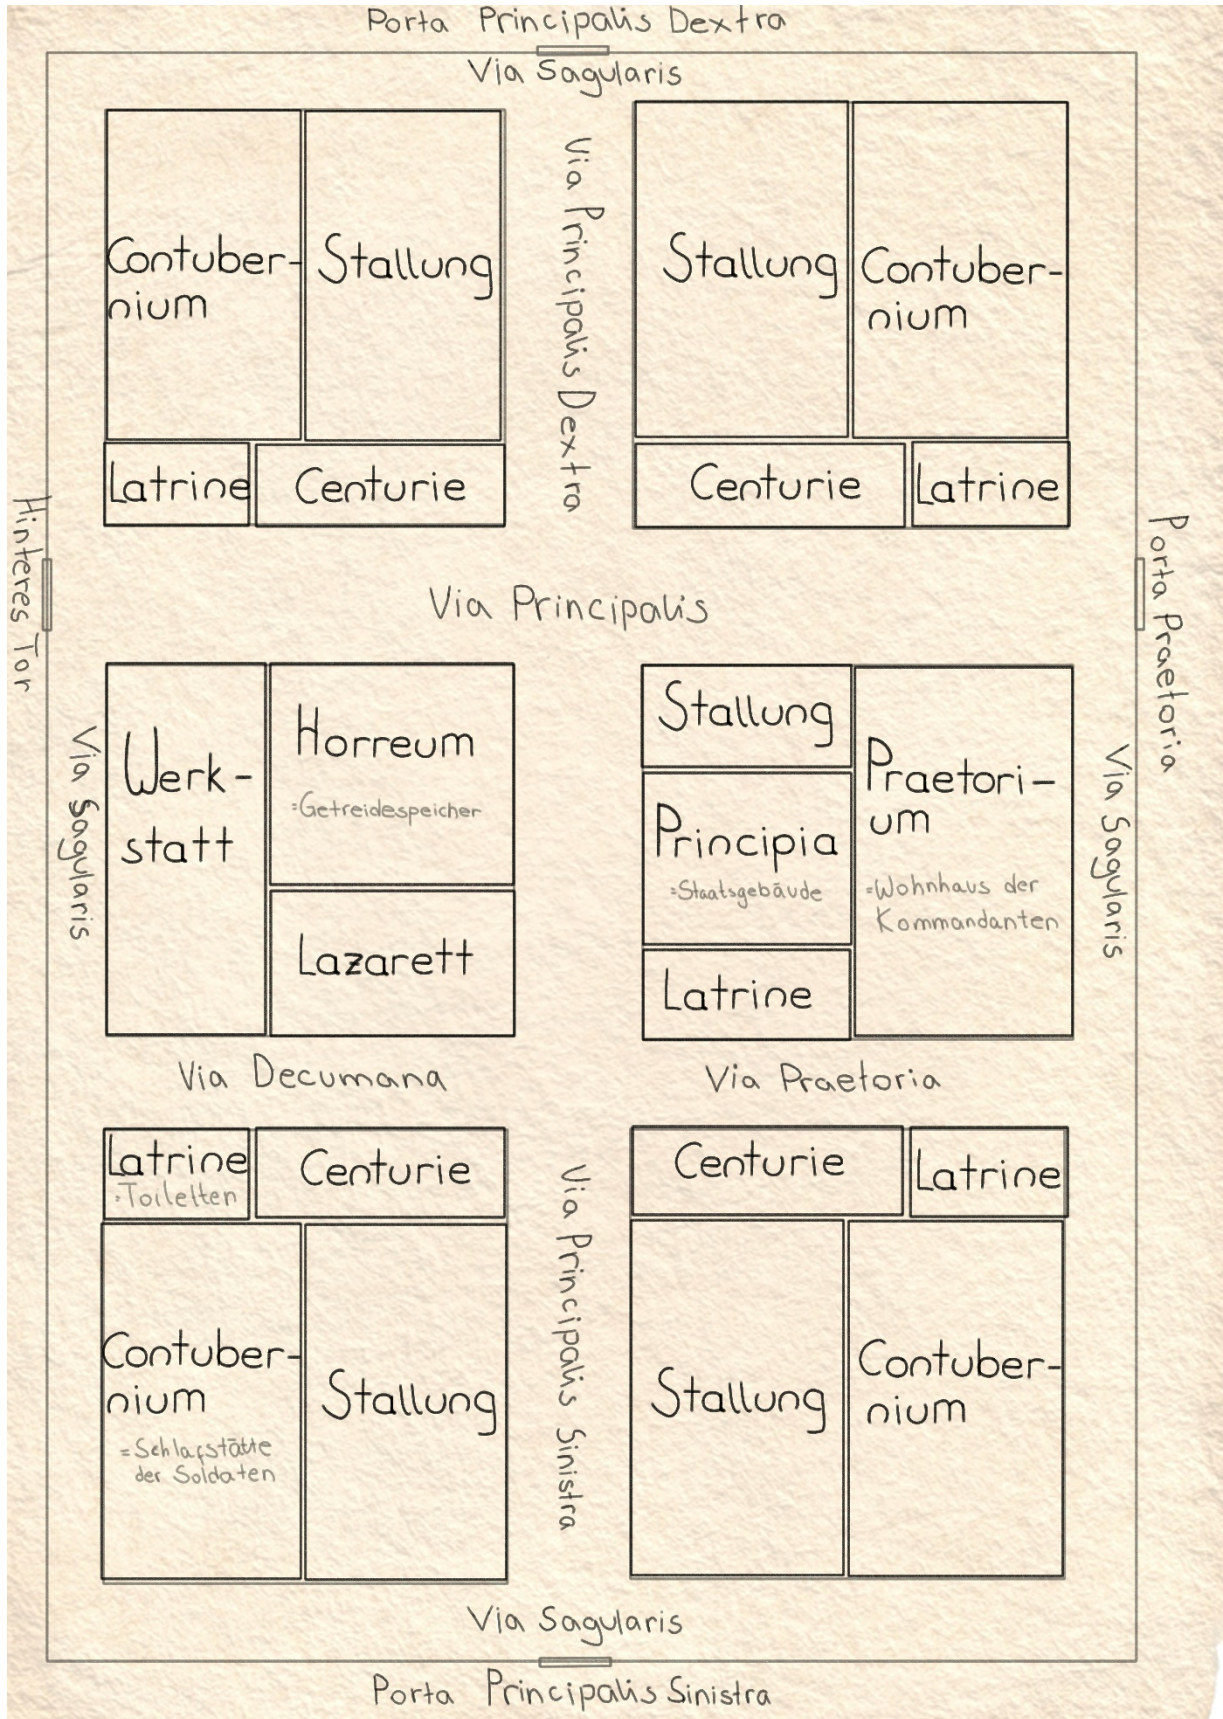 Porta Principalis Dextra
Via Sagularis
Contuber-
nium
Stallung
Via Principalis Dextra
Stallung
Contuber-
nium
Latrine
Centurie
Centurie
Latrine
Hinteres Tor
Via Principalis
Porta Praetoria
Via Sagularis
Werk-
statt
Horreum
=Getreidespeicher
Lazarett
Stallung
Principia
=Staatsgebäude
Latrine
Praetori-
um
=Wohnhaus der
Kommandanten
Via Sagularis
Via Decumana
Via Praetoria
Latrine
=Toiletten
Centurie
Centurie
Latrine
Contuber-
nium
=Schlafstätte
der Soldaten
Stallung
Via Principalis Sinistra
Stallung
Contuber-
nium
Via Sagularis
Porta Principalis Sinistra